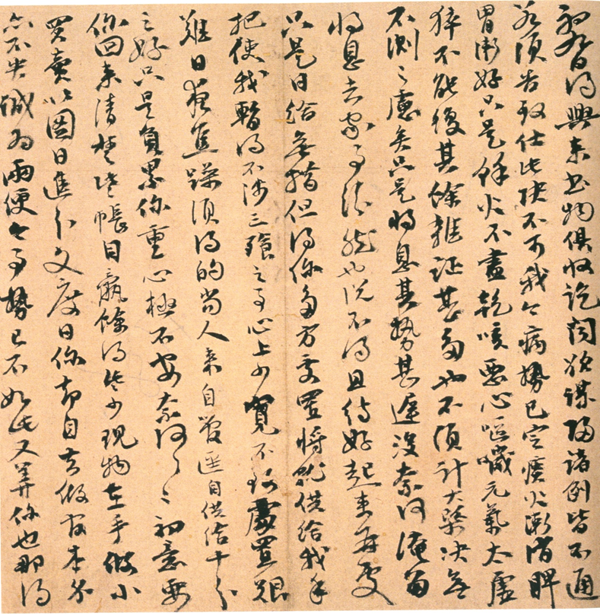 得興來書物俱收訖聞欲謀歸諸例皆不通
若須告致仕此決不可我今病勢已定痰火漸消脾
胃漸好只是餘火不盡乾咳惡心嘔噦元氣太虛
猝不能復其餘雜證甚多也不須計大槩決無
不測之慮矣只是將息其勢甚遲沒奈何淹留
將息去家事茫然也說不得且待好起來再處
只是日給無指但得你多方處置將就供給我手
把使我暫得不涉三飡之事心上少寬不致處置艱
難日夜焦躁須得的當人來自營運自供給十分
之好只是負累你重心極不安奈何奈何初意要
你回來清楚賬目羸餘得些少現物在手做小
買賣以圖日進分文度日你却自去做官本分
亦不失誠為兩便今事勢已不如此又弄你也那得